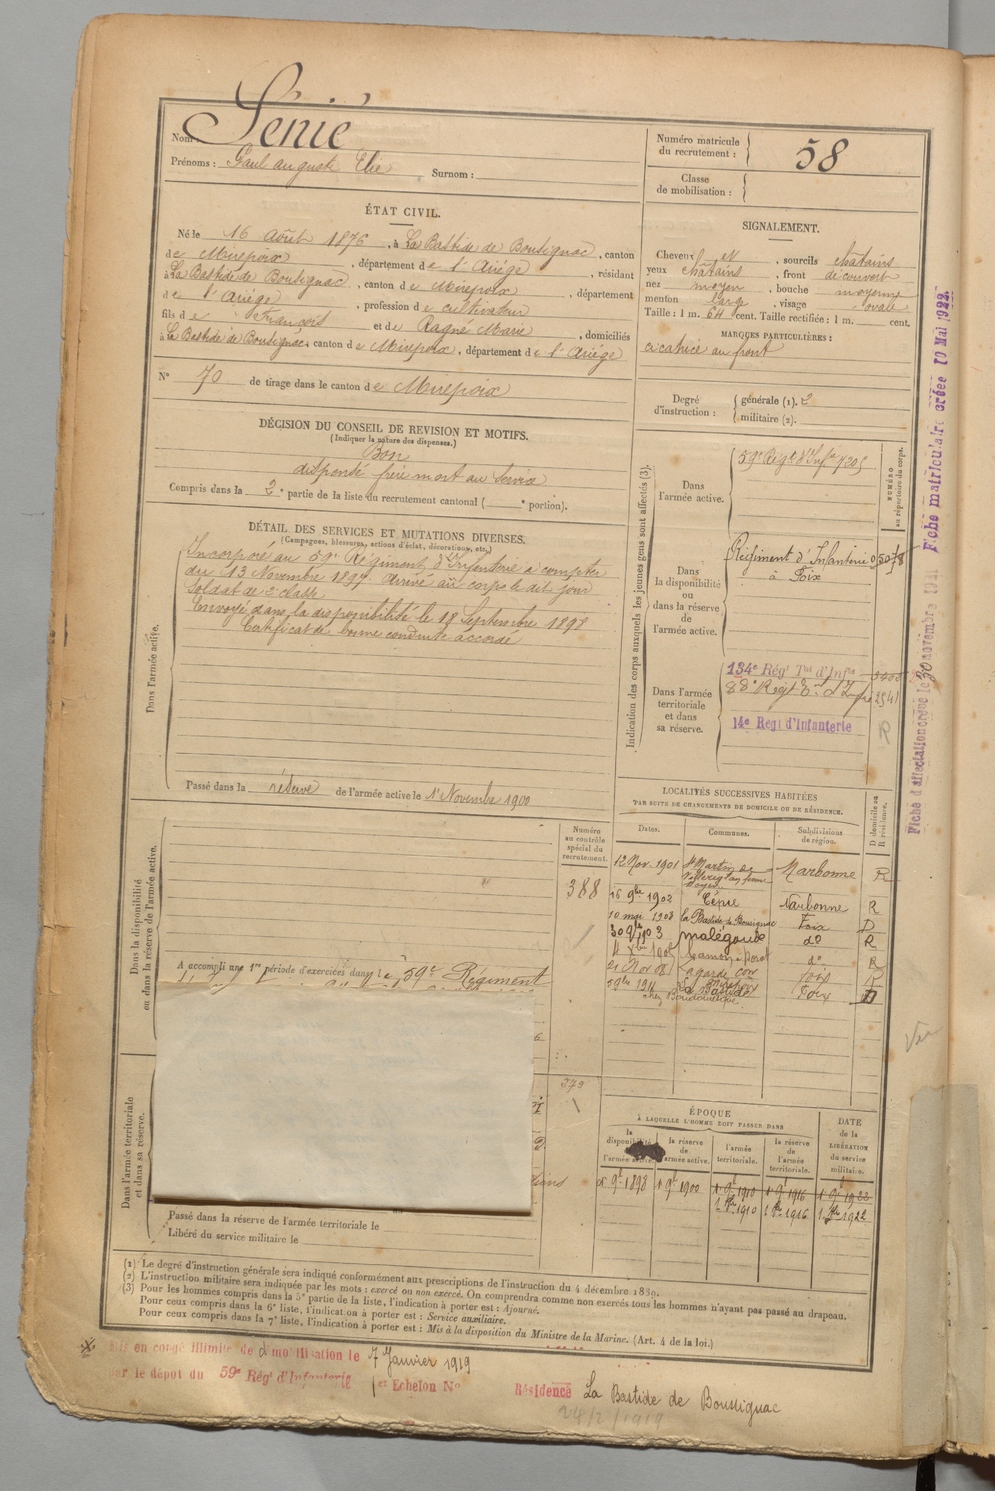 Nom : Sénié
Prénoms : Paul auguste Elie Surnom :
Numéro matricule
du recrutement : 58
Classe
de mobilisation :
ÉTAT CIVIL.
Né le 16 Août 1876, à La Bastide de Bousignac, canton
de Mirepoix, département de l'Ariège, résidant
à La Bastide de Bousignac, canton de Mirepoix, département
de l'Ariège, profession de cultivateur
fils de François et de Ragné Marie, domiciliés
à La Bastide de Bousignac, canton de Mirepoix, département de l'Ariège
N° 70 de tirage dans le canton de Mirepoix
SIGNALEMENT.
Cheveux et, sourcils châtains
yeux châtains, front découvert
nez moyen, bouche moyenne
menton large, visage ovale
Taille : 1 m. 64 cent. Taille rectifiée : 1 m. cent.
MARQUES PARTICULIÈRES :
cicatrice au front
Degré
d'instruction :
générale (1). 2
militaire (2).
DÉCISION DU CONSEIL DE REVISION ET MOTIFS.
(Indiquer la nature des dispenses.)
Bon
dispensé frère mort au service
Compris dans la 2e partie de la liste du recrutement cantonal ( e portion).
DÉTAIL DES SERVICES ET MUTATIONS DIVERSES.
(Campagnes, blessures, actions d'éclat, décorations, etc.)
Dans l'armée active.
Incorporé au 59e Régiment d'Infanterie à compter
du 13 Novembre 1897 arrivé au corps le dit jour
Soldat de 2e classe
Envoyé dans la disponibilité le 18 Septembre 1898
Certificat de bonne conduite accordé
Passé dans la réserve de l'armée active le 1er Novembre 1900
Indication des corps auxquels les jeunes gens sont affectés (3).
NUMÉRO
au répertoire du corps.
Dans
l'armée active.
59e Régt d'Infie 7205
Dans
la disponibilité
ou
dans la réserve
de
l'armée active.
Régiment d'Infanterie 05078
à Foix
Dans l'armée
territoriale
et dans
sa réserve.
134e Régt Tal d'Infie
88e Régt Tal d'Infie 2541
14e Régt d'Infanterie
R
Fiche d'affectation créée le 30 novembre 1911 Fiche matriculaire créée 10 Mai 1922
LOCALITÉS SUCCESSIVES HABITÉES
PAR SUITE DE CHANGEMENTS DE DOMICILE OU DE RÉSIDENCE.
Dates. Communes. Subdivisions
de région. D domicile ou
R résidence.
12 Nov. 1901 St Martin de Narbonne R
16 9bre 1902 Cépie Narbonne R
10 mai 1903 La Bastide de Bousignac Foix D
30 9bre 1903 malégoude do R
1908 do R
21 Nov 08 Lagarde Foix R
5 9bre 1911 La Bastide Foix D
Dans la disponibilité
ou dans la réserve de l'armée active.
Numéro
au contrôle
spécial du
recrutement.
388
A accompli une 1re période d'exercices dans le 59e Régiment
373
Dans l'armée territoriale
et dans sa réserve.
Passé dans la réserve de l'armée territoriale le
Libéré du service militaire le
ÉPOQUE
À LAQUELLE L'HOMME DOIT PASSER DANS
la
disponibilité
de
l'armée active.
la réserve
de
l'armée active.
l'armée
territoriale.
la réserve
de
l'armée
territoriale.
DATE
de la
LIBÉRATION
du service
militaire.
9bre 1898 1er 9bre 1900 1er 9bre 1910 1er 9bre 1916 1er 9bre 1922
1910 1916 1922
(1) Le degré d'instruction générale sera indiqué conformément aux prescriptions de l'instruction du 4 décembre 1889.
(2) L'instruction militaire sera indiquée par les mots : exercé ou non exercé. On comprendra comme non exercés tous les hommes n'ayant pas passé au drapeau.
(3) Pour les hommes compris dans la 5e partie de la liste, l'indication à porter est : Ajourné.
Pour ceux compris dans la 6e liste, l'indication à porter est : Service auxiliaire.
Pour ceux compris dans la 7e liste, l'indication à porter est : Mis à la disposition du Ministre de la Marine. (Art. 4 de la loi.)
Mis en congé illimité de démobilisation le 7 Janvier 1919
par le dépôt du 59e Régt d'Infanterie
1er Echelon No Résidence La Bastide de Boussignac
24/2/1919